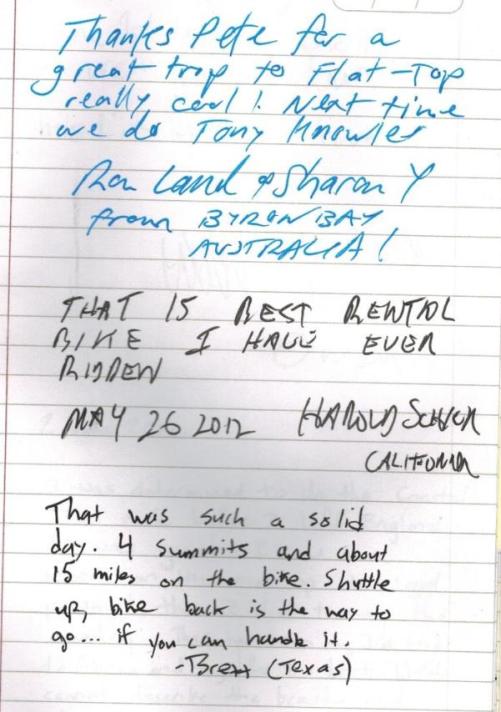 Thanks Pete for a
great trip to Flat-Top
really cool! Next time
we do Tony Knowles
Ron Land & Sharon Y
from BYRON BAY
AUSTRALIA!
THAT IS BEST RENTAL
BIKE I HAVE EVER
RIDDEN
MAY 26 2012 HAROLD
CALIFORNIA
That was such a solid
day. 4 summits and about
15 miles on the bike. Shuttle
up, bike back is the way to
go... if you can handle it.
-Brett (Texas)